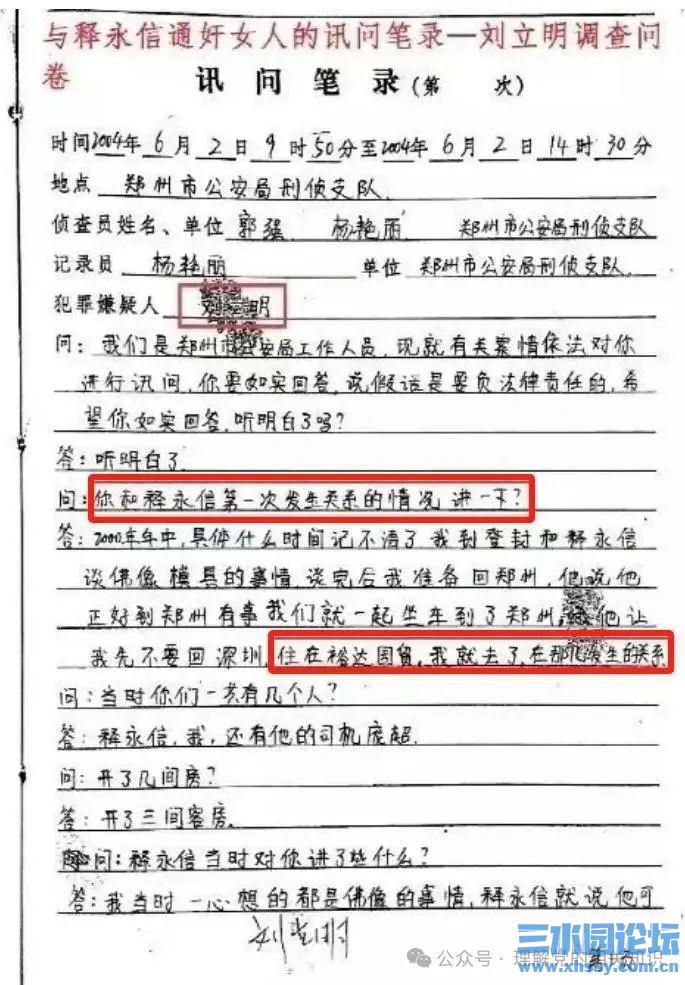 与释永信通奸女人的讯问笔录—刘立明调查问
卷
讯问笔录(第 次)
时间2004年6月2日9时50分至2004年6月2日14时30分
地点 郑州市公安局刑侦支队.
侦查员姓名、单位 郭强 杨艳丽 郑州市公安局刑侦支队
记录员 杨艳丽 单位 郑州市公安局刑侦支队.
犯罪嫌疑人 明
问:我们是郑州市公安局工作人员,现就有关案情依法对你
进行讯问,你要如实回答,说假话是要负法律责任的,希
望你如实回答,听明白了吗?
答:听明白了.
问:你和释永信第一次发生关系的情况讲一下?
答:2000年年中,具体什么时间记不清了我到登封和释永信
谈佛像模具的事情,谈完后我准备回郑州,他说他
正好到郑州有事我们就一起坐车到了郑州,他让
我先不要回深圳,住在裕达国贸,我就去了,在那儿发生的关系
问:当时你们一共有几个人?
答:释永信,我,还有他的司机庞超.
问:开了几间房?
答:开了三间客房.
问:释永信当时对你讲了些什么?
答:我当时一心想的都是佛像的事情,释永信就说他可
刘立明
公众号·理解党的相关知识
三水园论坛
www.xhssy.com